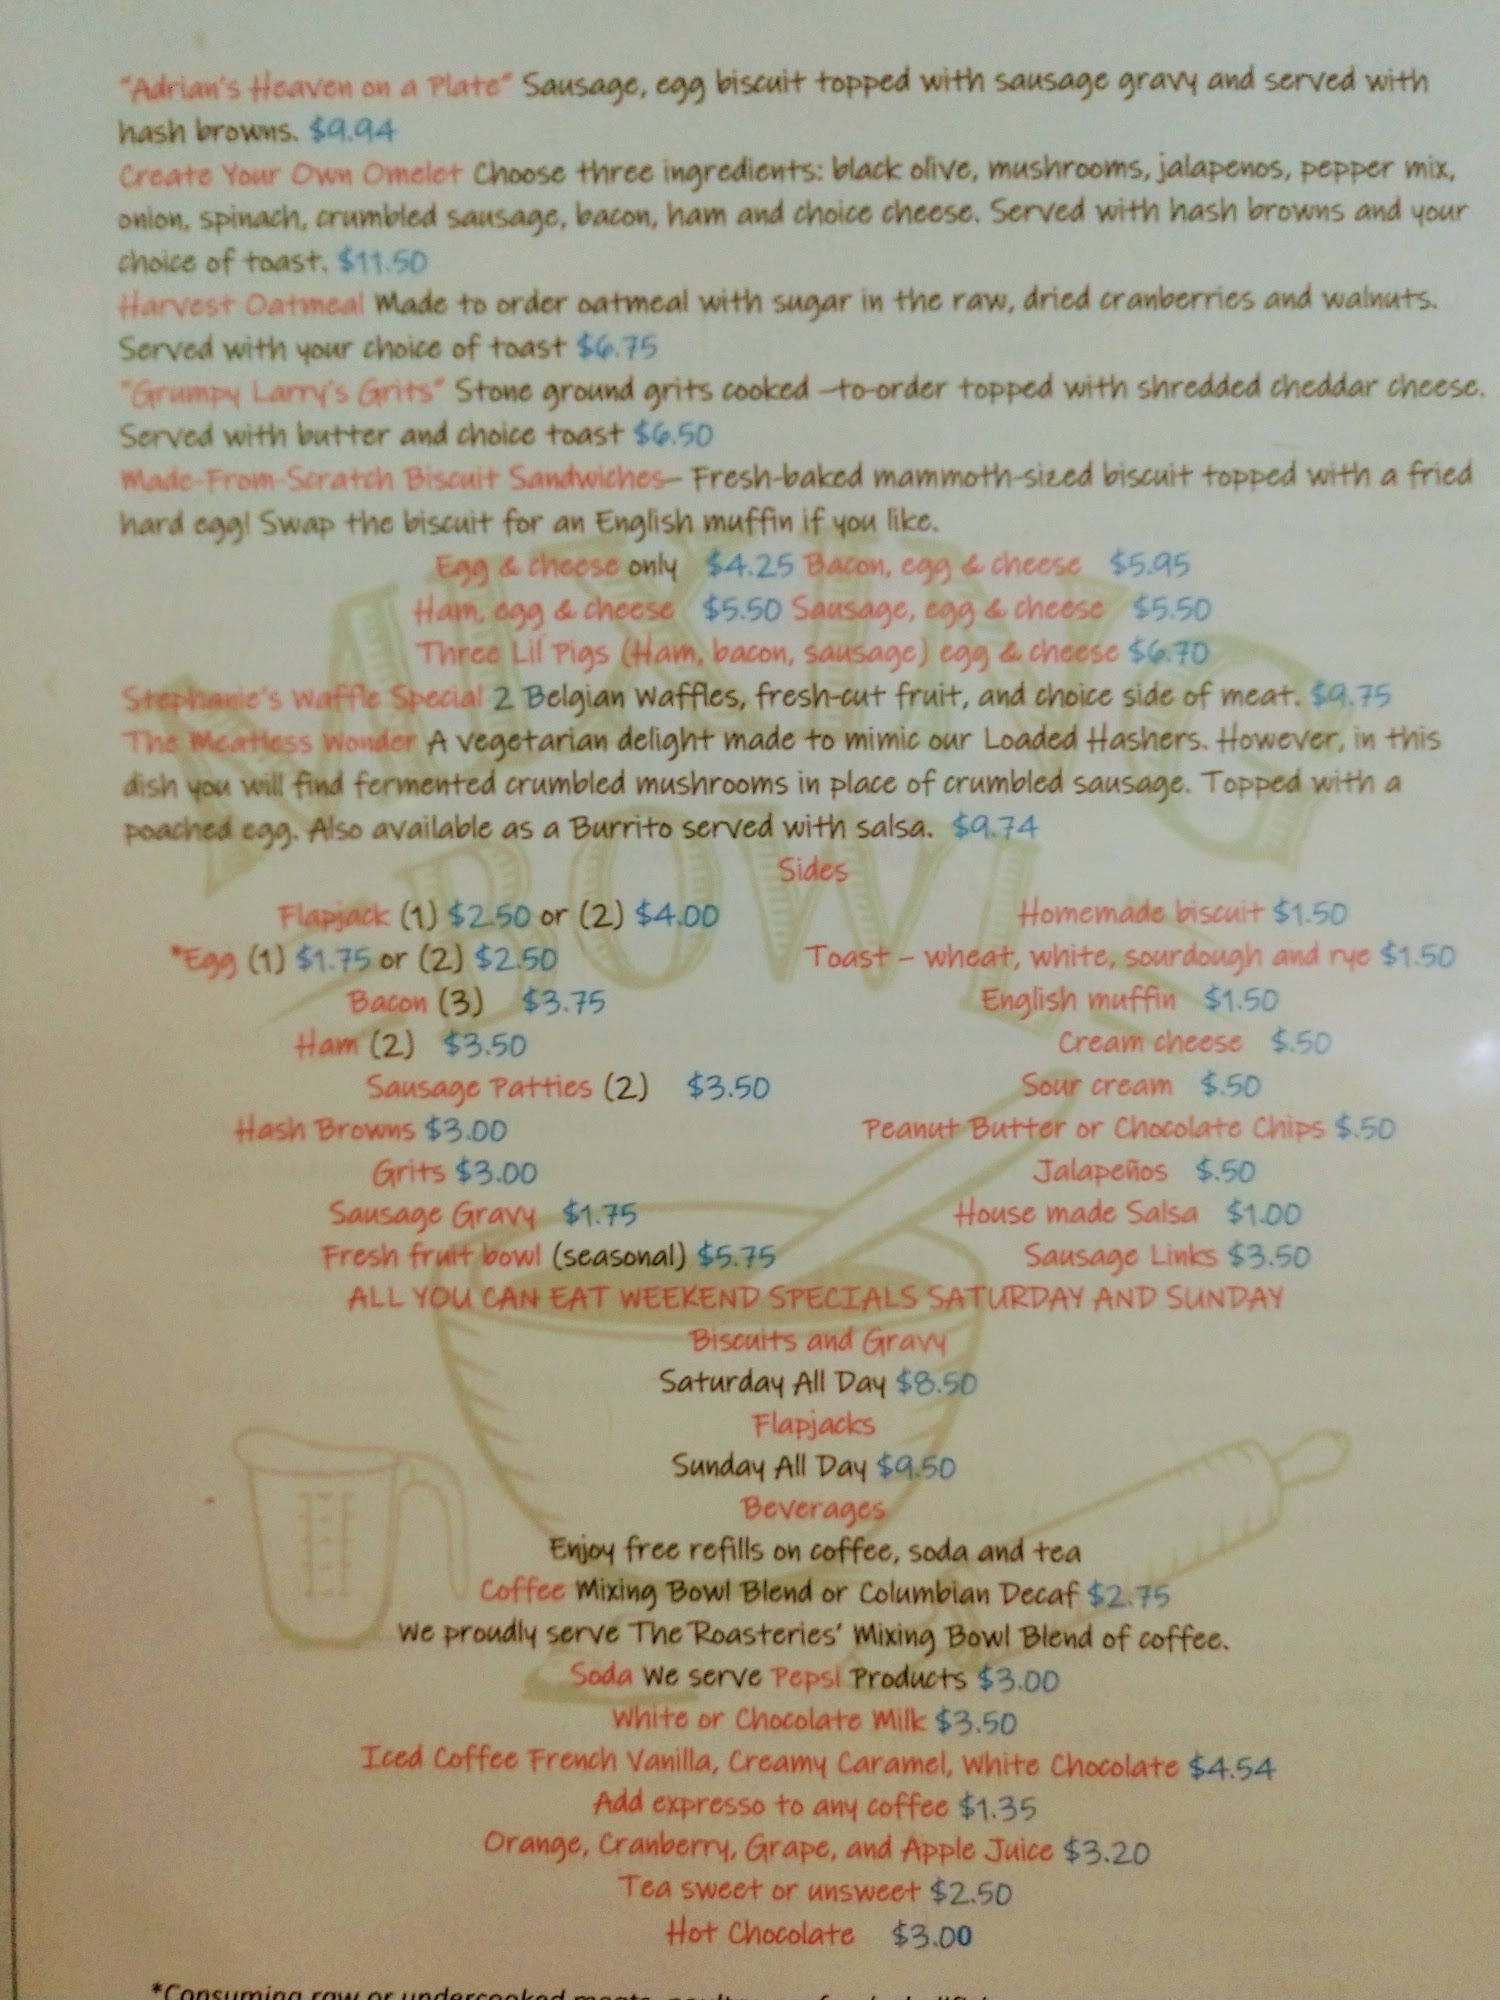 "Adrian's Heaven on a Plate" Sausage, egg biscuit topped with sausage gravy and served with
hash browns. $9.94
Create Your Own Omelet Choose three ingredients: black olive, mushrooms, jalapenos, pepper mix,
onion, spinach, crumbled sausage, bacon, ham and choice cheese. Served with hash browns and your
choice of toast. $11.50
Harvest Oatmeal Made to order oatmeal with sugar in the raw, dried cranberries and walnuts.
Served with your choice of toast $6.75
"Grumpy Larry's Grits" Stone ground grits cooked -to-order topped with shredded cheddar cheese.
Served with butter and choice toast $6.50
Made-From-Scratch Biscuit Sandwiches- Fresh-baked mammoth-sized biscuit topped with a fried
hard egg! Swap the biscuit for an English muffin if you like.
Egg & cheese only $4.25 Bacon, egg & cheese $5.95
Ham, egg & cheese $5.50 Sausage, egg & cheese $5.50
Three Lil Pigs (Ham, bacon, sausage) egg & cheese $6.70
Stephanie's Waffle Special 2 Belgian Waffles, fresh-cut fruit, and choice side of meat. $9.75
The Meatless Wonder A vegetarian delight made to mimic our Loaded Hashers. However, in this
dish you will find fermented crumbled mushrooms in place of crumbled sausage. Topped with a
poached egg. Also available as a Burrito served with salsa. $9.74
MIXING
BOWL
Sides
Flapjack (1) $2.50 or (2) $4.00 Homemade biscuit $1.50
*Egg (1) $1.75 or (2) $2.50 Toast - wheat, white, sourdough and rye $1.50
Bacon (3) $3.75 English muffin $1.50
Ham (2) $3.50 Cream cheese $.50
Sausage Patties (2) $3.50 Sour cream $.50
Hash Browns $3.00 Peanut Butter or Chocolate Chips $.50
Grits $3.00 Jalapeños $.50
Sausage Gravy $1.75 House made Salsa $1.00
Fresh fruit bowl (seasonal) $5.75 Sausage Links $3.50
ALL YOU CAN EAT WEEKEND SPECIALS SATURDAY AND SUNDAY
Biscuits and Gravy
Saturday All Day $8.50
Flapjacks
Sunday All Day $9.50
Beverages
Enjoy free refills on coffee, soda and tea
Coffee Mixing Bowl Blend or Columbian Decaf $2.75
We proudly serve The Roasteries' Mixing Bowl Blend of coffee.
Soda We serve Pepsi Products $3.00
White or Chocolate Milk $3.50
Iced Coffee French Vanilla, Creamy Caramel, White Chocolate $4.54
Add expresso to any coffee $1.35
Orange, Cranberry, Grape, and Apple Juice $3.20
Tea sweet or unsweet $2.50
Hot Chocolate $3.00
*Consuming raw or undercooked meats,